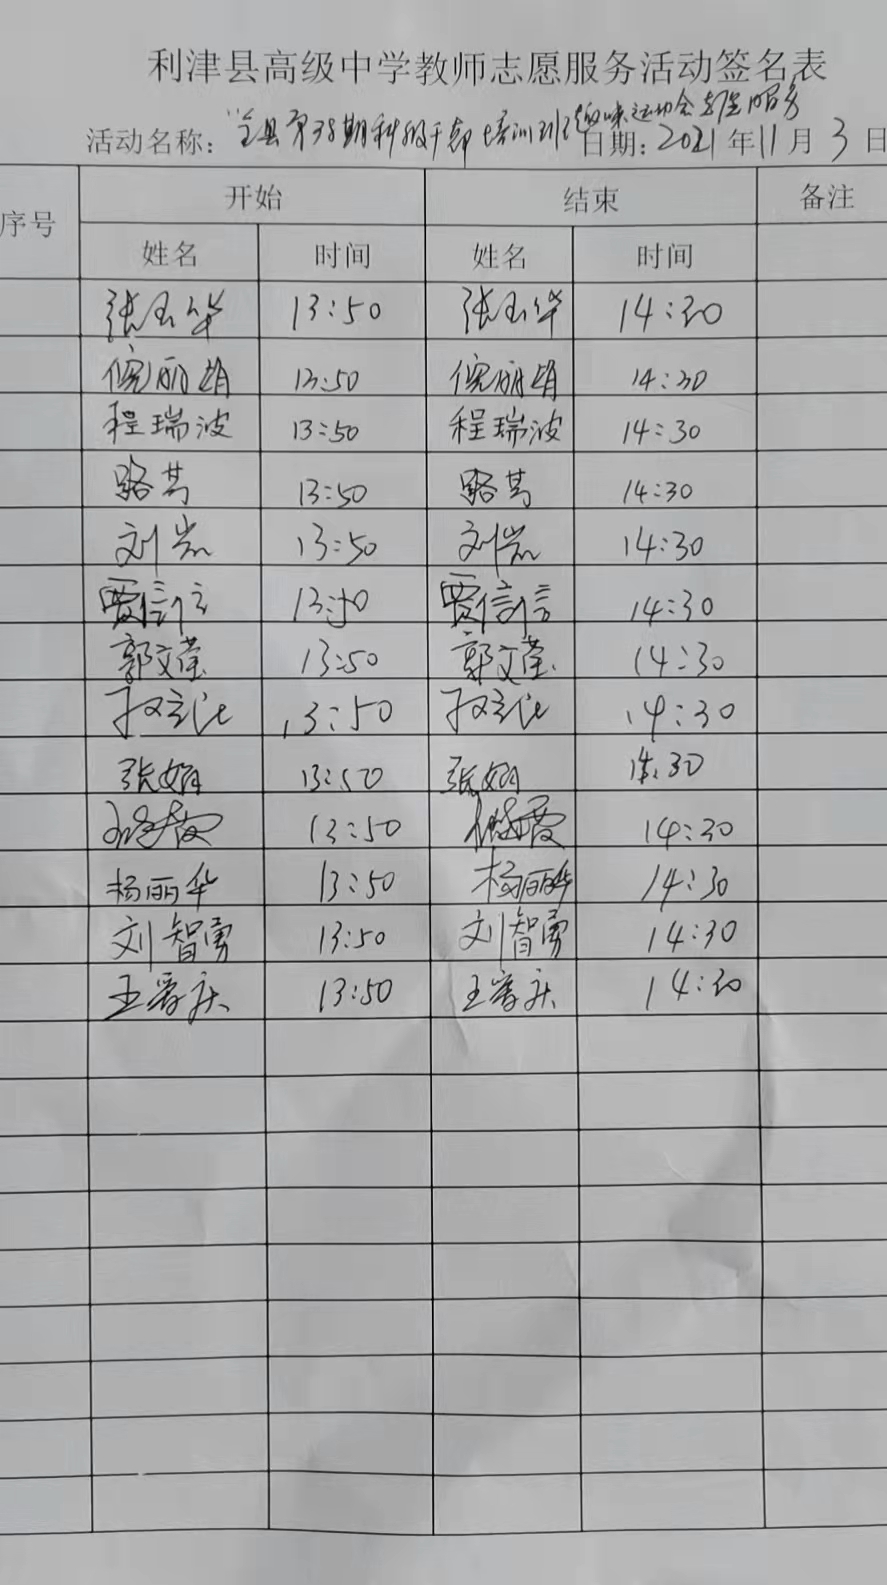 利津县高级中学教师志愿服务活动签名表
活动名称: "全县第38期科级干部培训班"趣味运动会志愿服务
日期: 2021年11月3日
序号 开始 结束 备注
姓名 时间 姓名 时间
张玉华 13:50 张玉华 14:30
倪丽娟 13:50 倪丽娟 14:30
程瑞波 13:50 程瑞波 14:30
路芳 13:50 路芳 14:30
刘岩 13:50 刘岩 14:30
贾信信 13:50 贾信信 14:30
郭文莹 13:50 郭文莹 14:30
13:50 14:30
张娟 13:50 张娟 14:30
13:50 14:30
杨丽华 13:50 杨丽华 14:30
刘智勇 13:50 刘智勇 14:30
13:50 14:30